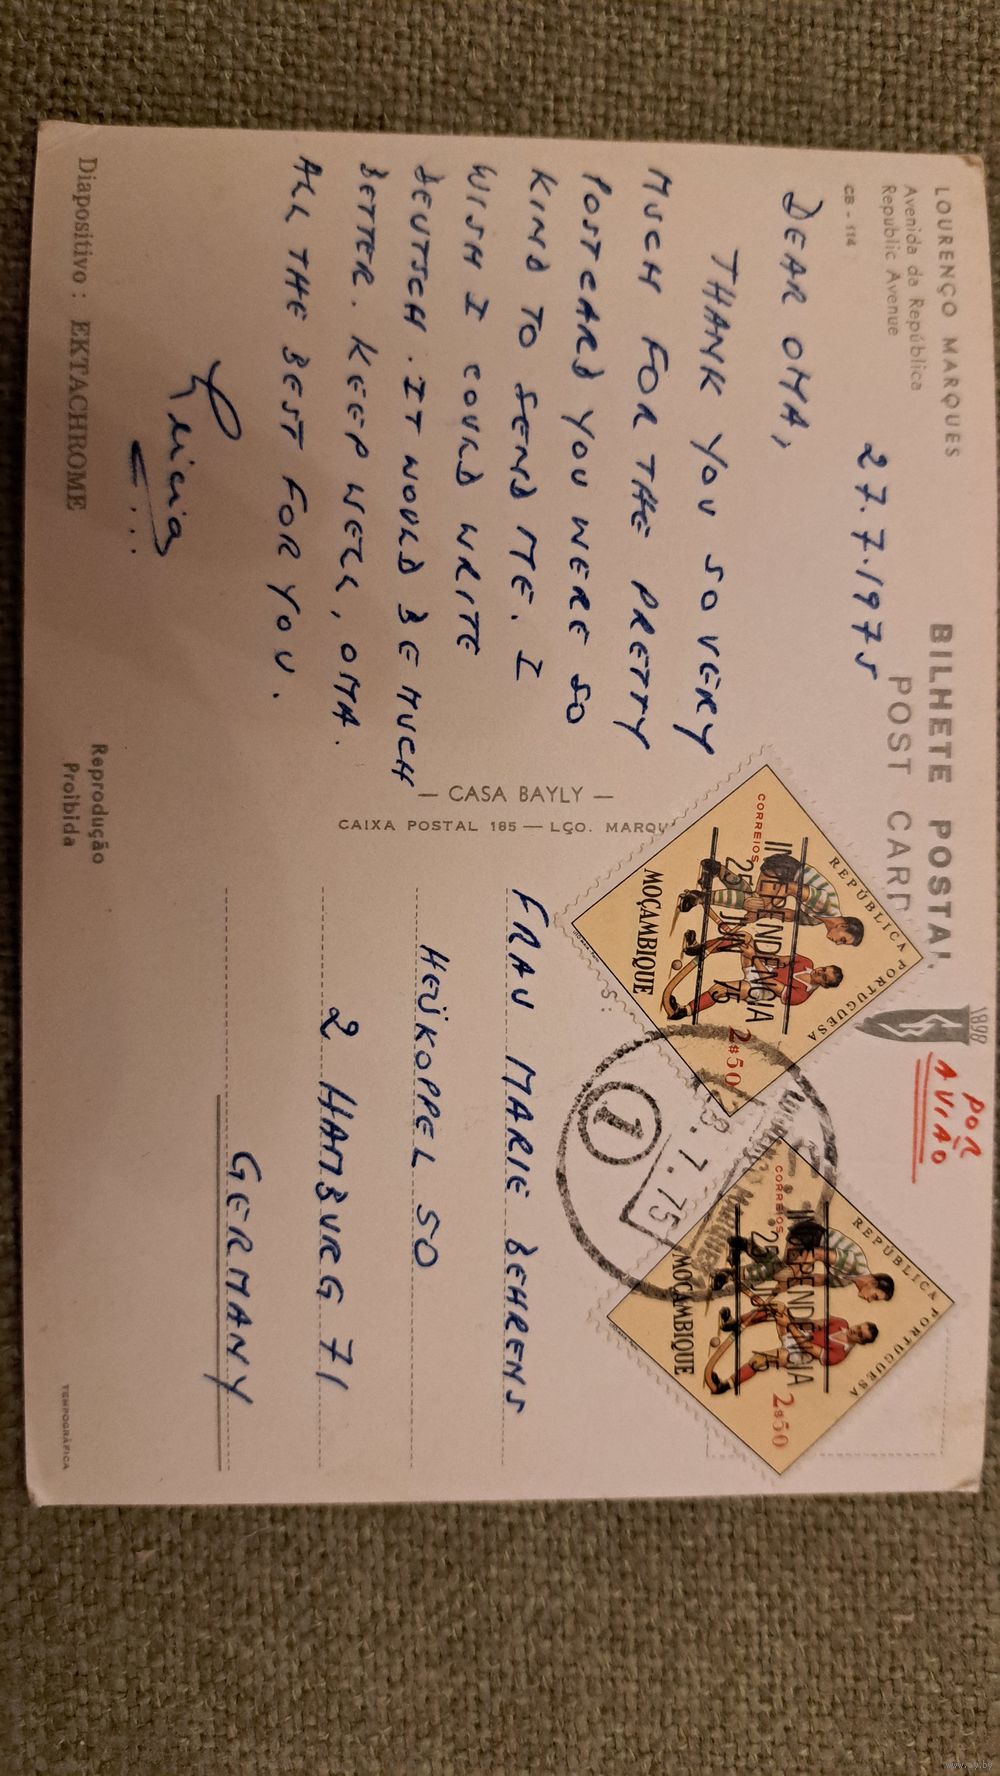 LOURENÇO MARQUES
Avenida da República
Republic Avenue
CB - 114
BILHETE POSTAL
POST CARD
1898
POR
AVIÃO
27.7.1975
DEAR OMA,
THANK YOU SO VERY
MUCH FOR THE PRETTY
POSTCARD YOU WERE SO
KIND TO SEND ME. I
WISH I COULD WRITE
DEUTSCH. IT WOULD BE MUCH
BETTER. KEEP WELL, OMA.
ALL THE BEST FOR YOU.
— CASA BAYLY —
CAIXA POSTAL 185 — LÇO. MARQU
REPÚBLICA PORTUGUESA
CORREIOS
INDEPENDÊNCIA
25 JUN 75
MOÇAMBIQUE
2$50
REPÚBLICA PORTUGUESA
CORREIOS
INDEPENDÊNCIA
25 JUN 75
MOÇAMBIQUE
2$50
8. 7. 75
1
FRAU MARIE BEHRENS
HEÜKOPPEL 50
2 HAMBURG 71
GERMANY
Diapositivo : EKTACHROME
Reprodução
Proibida
TEMPOGRÁFICA
www.ay.by